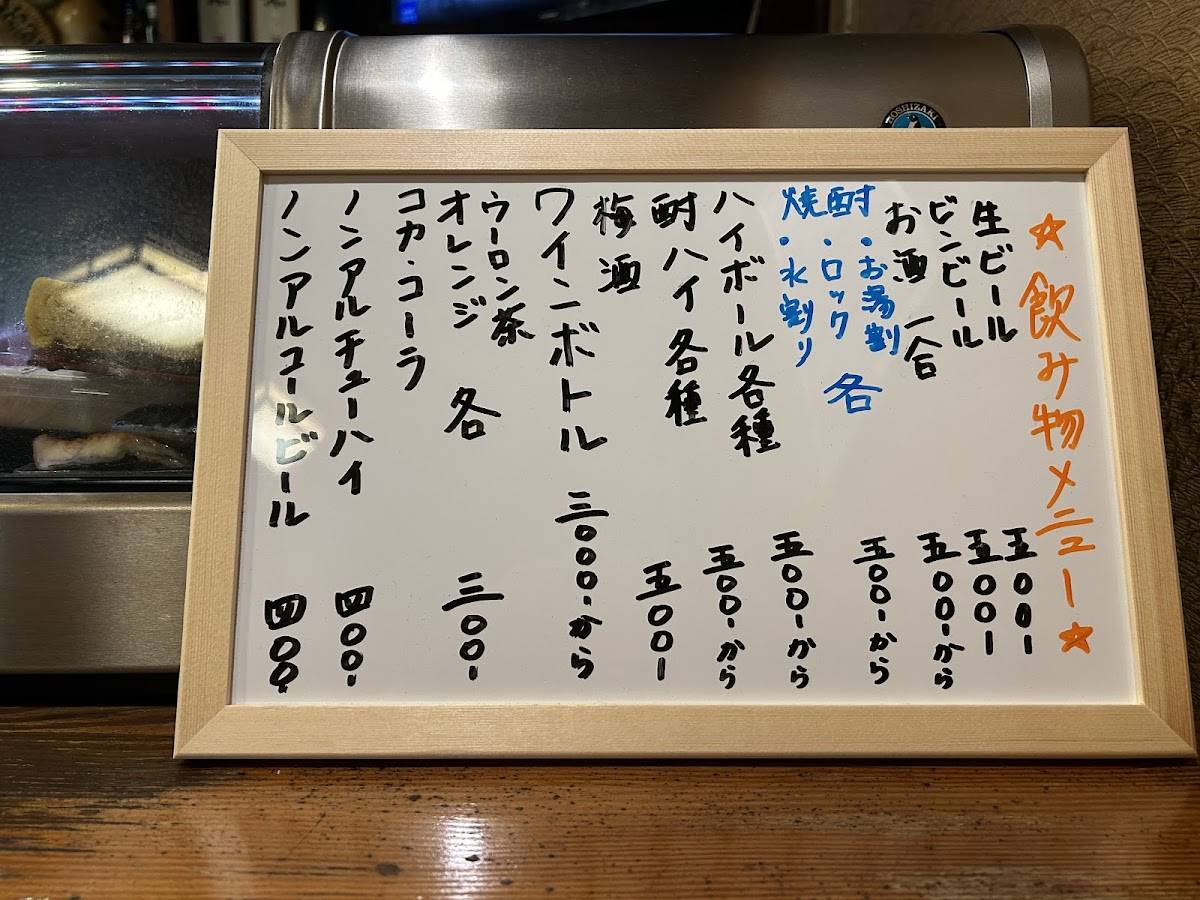 ☆飲み物メニュー☆
生ビール 五〇〇-
ビンビール 五〇〇-
お酒 一合 五〇〇-から
焼酎 ・お湯割 ・ロック ・水割り 各 五〇〇-から
ハイボール各種 五〇〇-から
酎ハイ各種 五〇〇-から
梅酒 五〇〇-
ワインボトル 三〇〇〇-から
ウーロン茶
オレンジ 各 三〇〇-
コカ・コーラ
ノンアルチューハイ 四〇〇-
ノンアルコールビール 四〇〇-
HOSHIZAKI